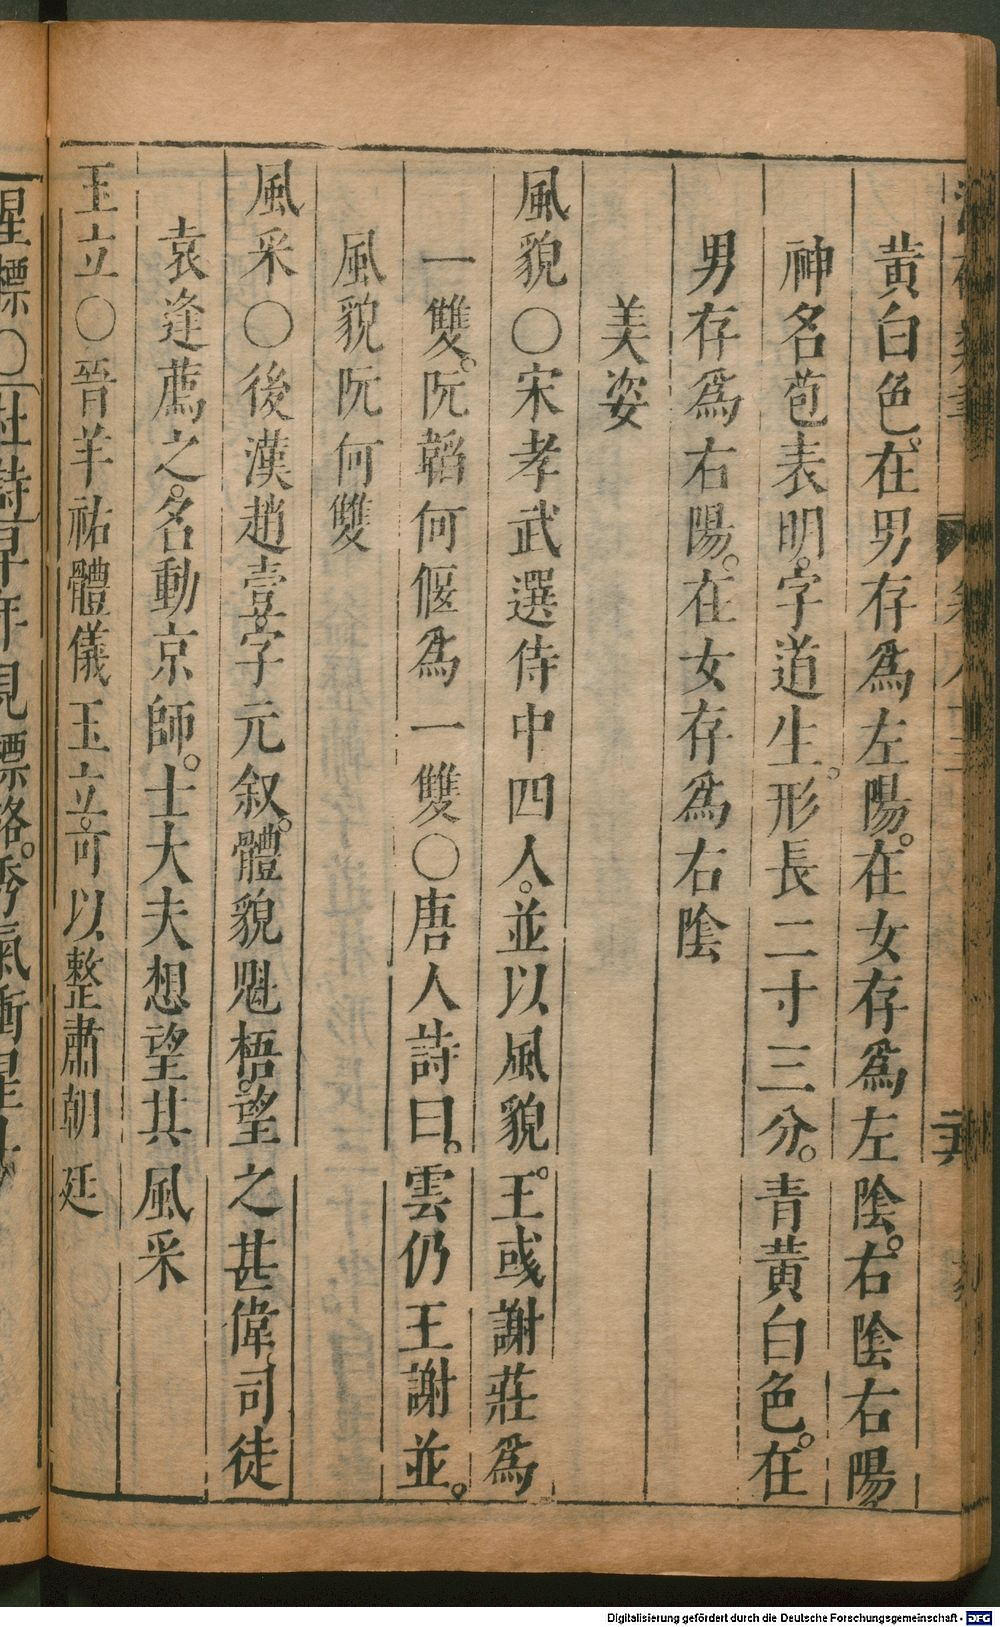 黃白色。在男存爲左陽。在女存爲左陰。右陰右陽
神名苞表明。字道生。形長二寸三分。青黃白色。在
男存爲右陽。在女存爲右陰
美姿
風貌〇宋孝武選侍中四人。並以風貌。王彧謝莊爲
一雙。阮韜何偃爲一雙〇唐人詩曰。雲仍王謝並。
風貌阮何雙
風采〇後漢趙壹。字元叙。體貌魁梧。望之甚偉。司徒
袁逢薦之。名動京師。士大夫想望其風采
玉立〇晉羊祜體儀玉立。可以整肅朝廷
星標〇杜詩早年見標格。秀氣衝星斗
Digitalisierung gefördert durch die Deutsche Forschungsgemeinschaft - DFG